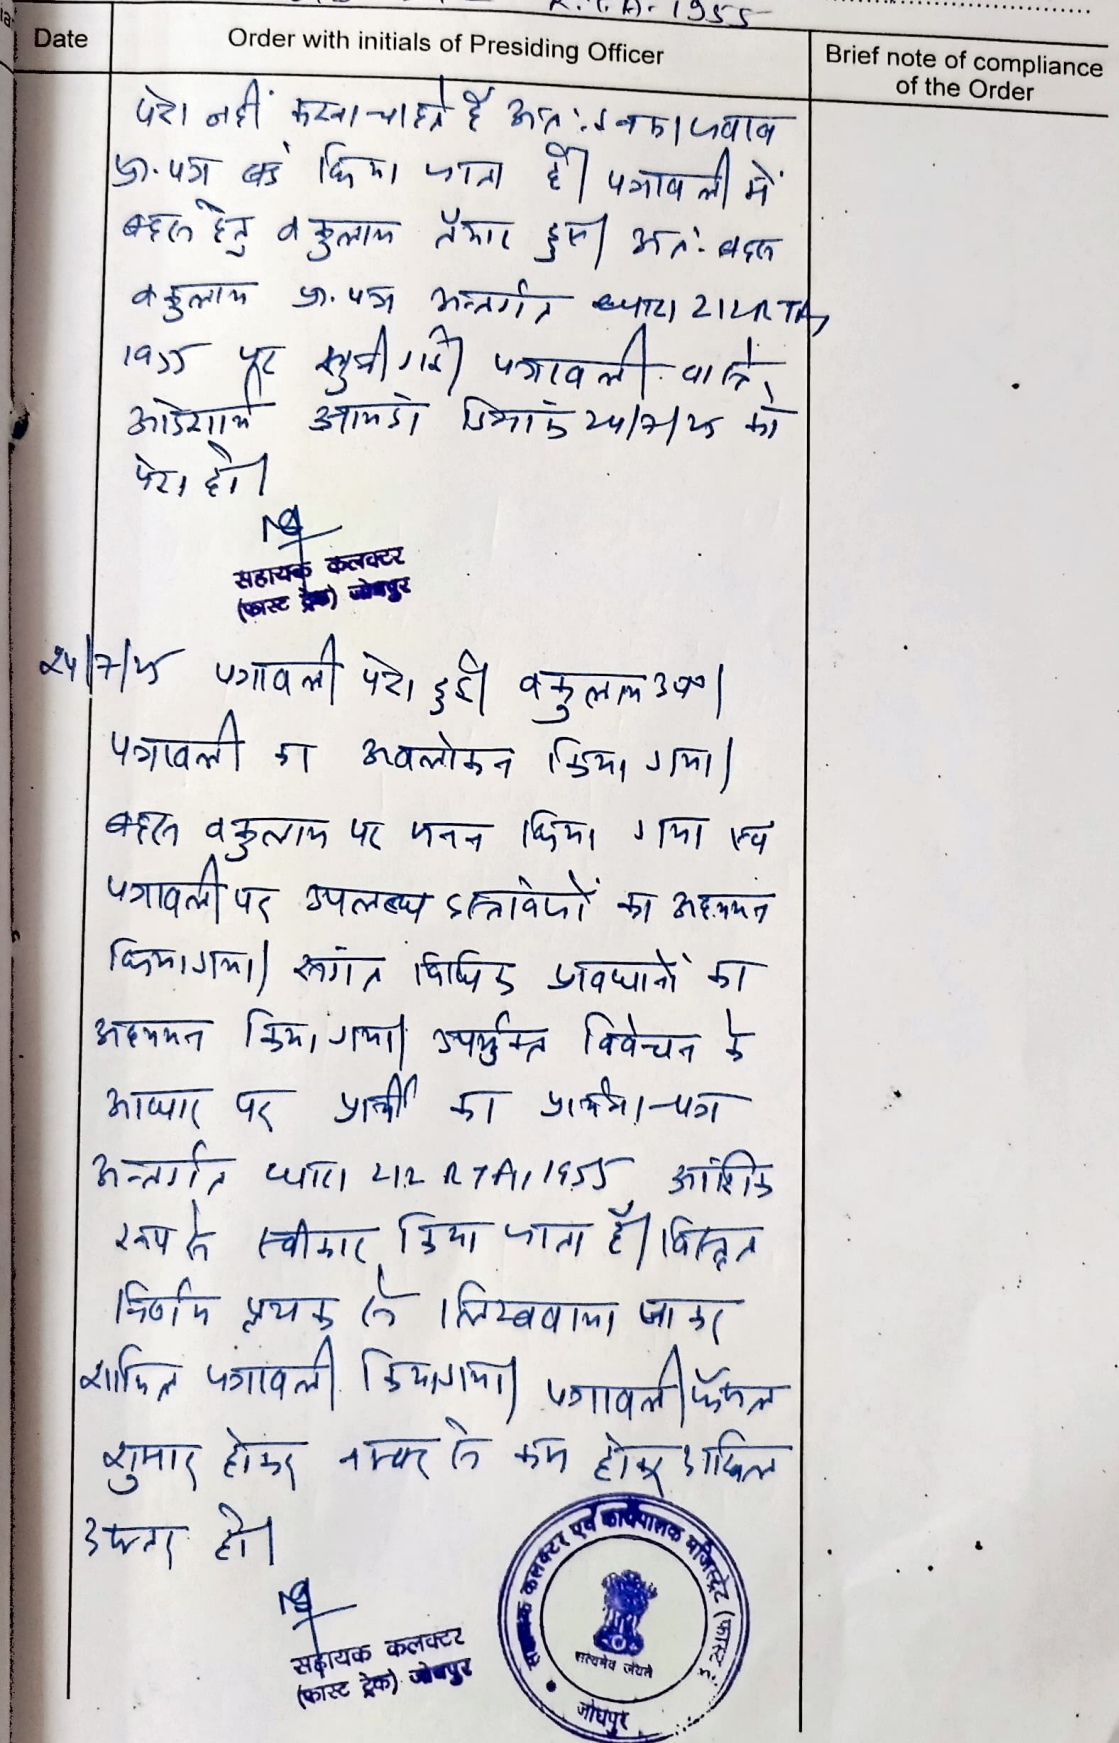 R.T.A. 1955
Date
Order with initials of Presiding Officer
Brief note of compliance
of the Order
पेश नहीं करना चाहते है अतः इनका जवाब
प्रा. पत्र बंद किया जाता है। पत्रावली में
बहस हेतु वकुलाय तैयार हुए। अतः बहस
वकुलाय प्रा. पत्र अन्तर्गत धारा 212 RTA,
1955 पर सुनी गई। पत्रावली वास्ते
आदेशार्थ आयन्दा दिनांक 24/7/25 को
पेश हो।
सहायक कलक्टर
(फास्ट ट्रेक) जोधपुर
24/7/25 पत्रावली पेश हुई। वकुलाय उप०।
पत्रावली का अवलोकन किया गया।
बहस वकुलाय पर मनन किया गया एवं
पत्रावली पर उपलब्ध दस्तावेजों का अध्ययन
किया गया। सुसंगत विधिक प्रावधानों का
अध्ययन किया गया। उपर्युक्त विवेचन के
आधार पर प्रार्थी का प्रार्थना-पत्र
अन्तर्गत धारा 212 RTA, 1955 आंशिक
रूप से स्वीकार किया जाता है। विस्तृत
निर्णय पृथक से लिखवाया जाकर
शामिल पत्रावली किया गया। पत्रावली फैसल
शुमार होकर नम्बर से कम होकर दाखिल
दफ्तर हो।
सहायक कलक्टर
(फास्ट ट्रेक) जोधपुर
सहायक कलक्टर एवं कार्यपालक मजिस्ट्रेट (फास्ट
सत्यमेव जयते
जोधपुर